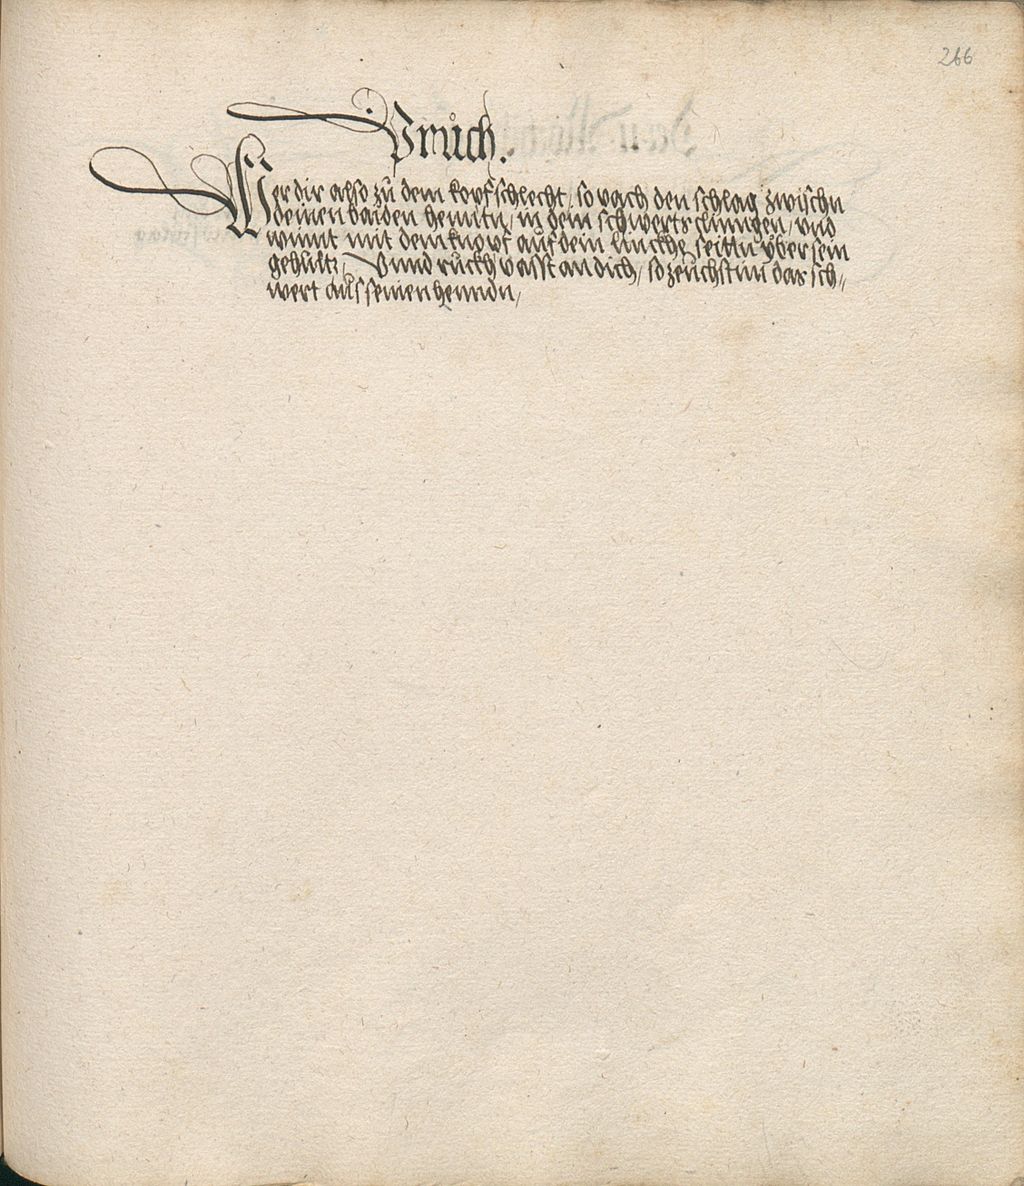 266
Pruͦch.
Wer dir also zuͦ dem kopf schlecht / so vach den schlag zwischn
deinen baiden henntn / in dein schwerts clingen / vnd
winnt mit dem knopf auf dein linckhe seittn vͤber sein
gehultz / Vnnd ruckh vasst an dich / so zeuchst im das sch//
wert aus seinen henndn /